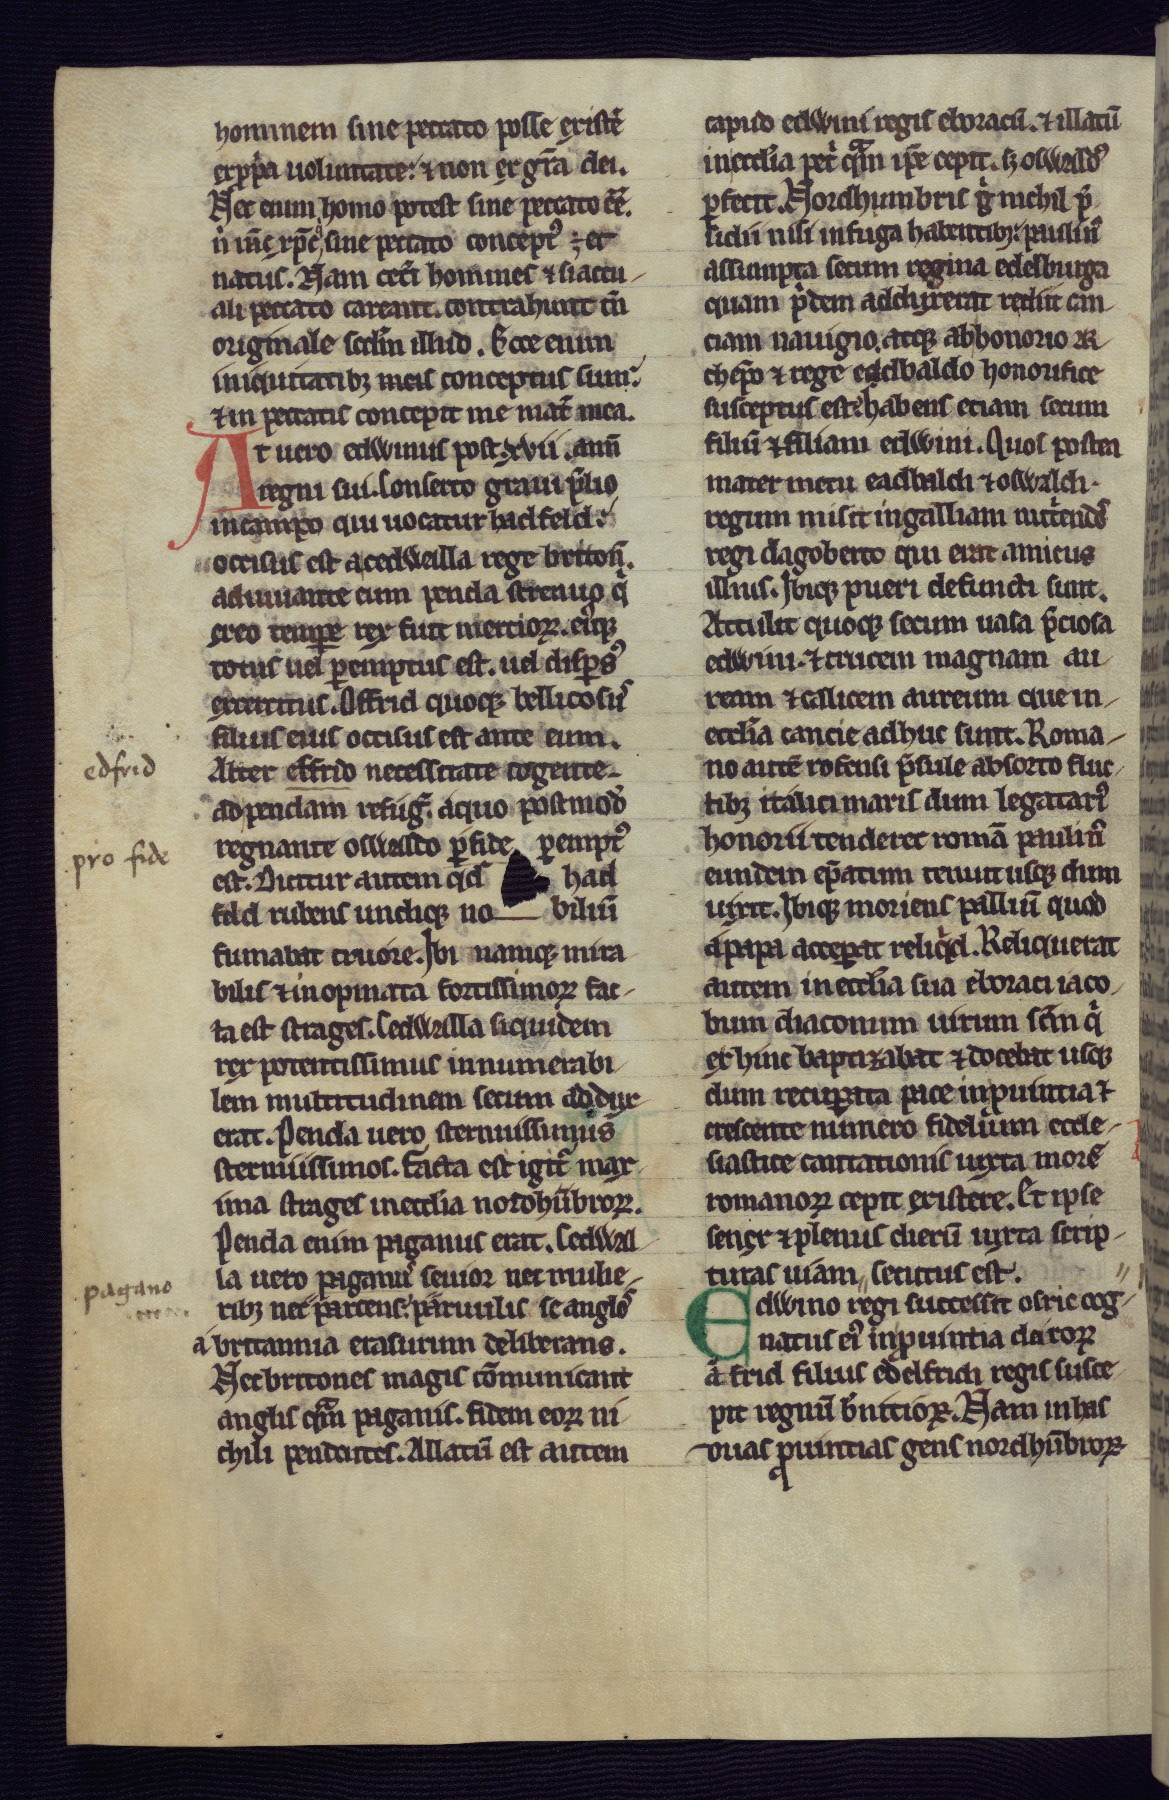 hominem sine peccato posse existe᷑
ex ꝓp̃a uoluntate: ⁊ non ex gr̃a dei.
Nec enim homo potest sine peccato ee᷑.
n̉ iñe xp̃c sine peccato concept᷒ ⁊ et
natus. Nam cet̃i homines ⁊ si actu-
ali peccato careant. contrahunt cũ
originale scd̃m illud. Ecce enim
iniquitatibꝫ meis conceptus sum:
⁊ in peccatis concepit me mat̃ mea.
At uero edwinus post .xvii. ann̄
regni sui. Conserto graui p̃lio
in campo qui uocatur hadfeld:
occisus est a cedwalla rege briton̄.
adiuuante eum penda strenuo q̉
ex eo tempe rex fuit merciorꝝ. ei᷒qꝫ
totus uel ꝑemptus est. uel disp̃s᷒
exercitus. Offrid quoqꝫ bellicosu᷒
filius eius occisus est ante eum.
edfrid
Alter effrid necessitate cogente
ad pendam refug̃. a quo postmod̄
pro fide
regnante oswaldo ꝑfide ꝑempt᷒
est. Dicitur autem qd̄ had
feld rubens undiqꝫ no biliū
fumabat cruore. Ibi namqꝫ mira
bilis ⁊ inopinata fortissimorꝝ fac-
ta est strages. Cedwalla siquidem
rex potentissimus innumerabi
lem multitudinem secum addux
erat. Penda uero sternuissimus
sternuissimos. Facta est igit̃ max
ima strages in ecclia nordhūbrorꝝ.
Penda enim paganus erat. Cedwal
pagano
la uero paganu᷒ seuior nec mulie-
ribꝫ nec parcens: paruulis se anglos
a britannia erasurum deliberans.
Nec britones magis cōmunicant
anglis qm̃ paganis. fidem eorꝝ ni
chili pendentes. Allatū est autem
capud edwini regis eboracū. ⁊ illatū
in ecclia pet̉ qm̃ ip̄e cepit. sꝫ oswald᷒
ꝑfecit. Nordhumbris g̉ nichil p̃
sidii nisi in fuga habentibꝫ: paulin᷒
assumpta secum regina edelburga
quam p̉dem adduxerat rediit can
ciam nauigio. atqꝫ ab honorio ar
chep̄o ⁊ rege edelbaldo honorifice
susceptus est: habens etiam secum
filiū ⁊ filiam edwini. Quos postea
mater metu eadbaldi ⁊ oswaldi
regum misit in galliam nut̉endos
regi dagoberto qui erat amicus
illius. Ibiqꝫ pueri defuncti sunt.
Attulit quoqꝫ secum uasa p̃ciosa
edwini. ⁊ crucem magnam au
ream ⁊ calicem aureum que in
ecclia cancie adhuc sunt. Roma-
no autē rofensi p̃sule absorto fluc-
tibꝫ italici maris dum legatari᷒
honorii tenderet romā paulin᷒
eundem ep̃atum tenuit usqꝫ dum
uixit. Ibiqꝫ moriens palliū quod
a papa acceperat reliq̉d. Reliquerat
autem in ecclia sua eboraci iaco-
bum diaconum uirum scm̃ q̉
ex hinc baptizabat ⁊ docebat usqꝫ
dum recuꝑata pace in ꝓuintia ⁊
crescente numero fidelium eccle-
siastice cantationis iuxta morē
romanorꝝ cepit existere. Et ipse
senex ⁊ plenus dierū iuxta scrip-
turas uiam secutus est.
Edwino regi successit osric cog-
natus ei᷒ in ꝓuintia deirorꝝ
a frid filius edelfridi regis susce
pit regnū bniciorꝝ. Nam in has
duas ꝓuintias gens nordhūbrorꝝ